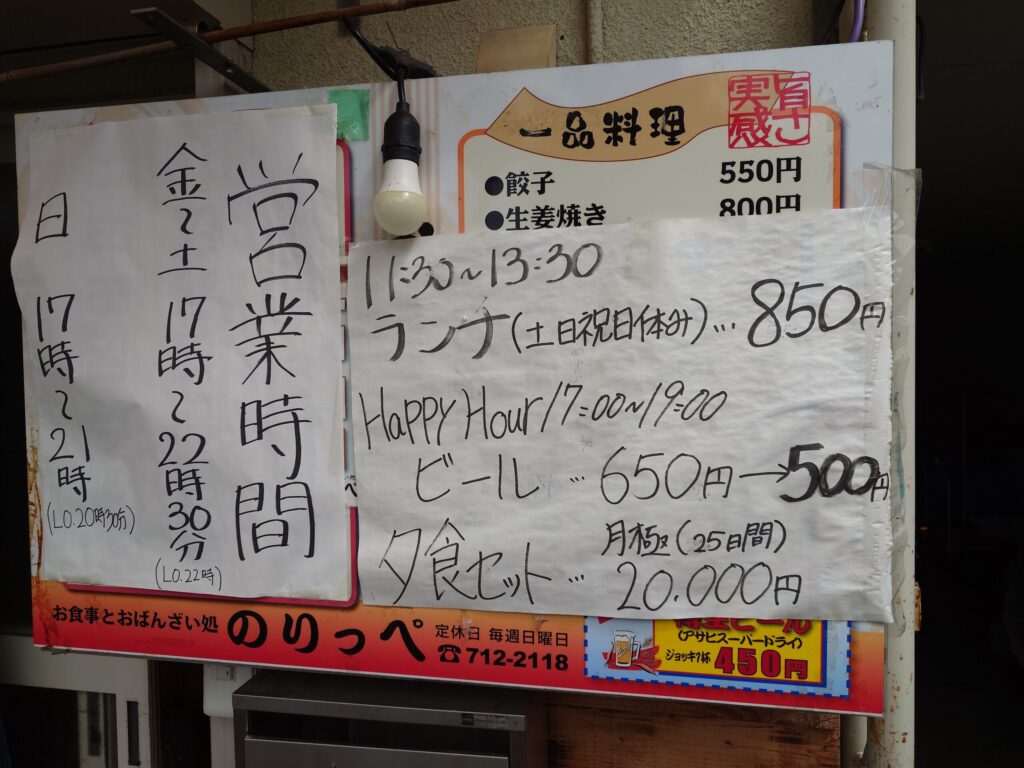 営業時間
金~土 17時~22時30分
(L.O.22時)
日 17時~21時
(L.O.20時30分)
一品料理
旨さ実感
●餃子 550円
●生姜焼き 800円
11:30~13:30
ランチ(土日祝日休み)…850円
Happy Hour 17:00~19:00
ビール…650円→500円
夕食セット…月極(25日間)
20.000円
お食事とおばんざい処 のりっぺ
定休日 毎週日曜日
☎712-2118
ビール
(アサヒスーパードライ)
ジョッキ1杯 450円